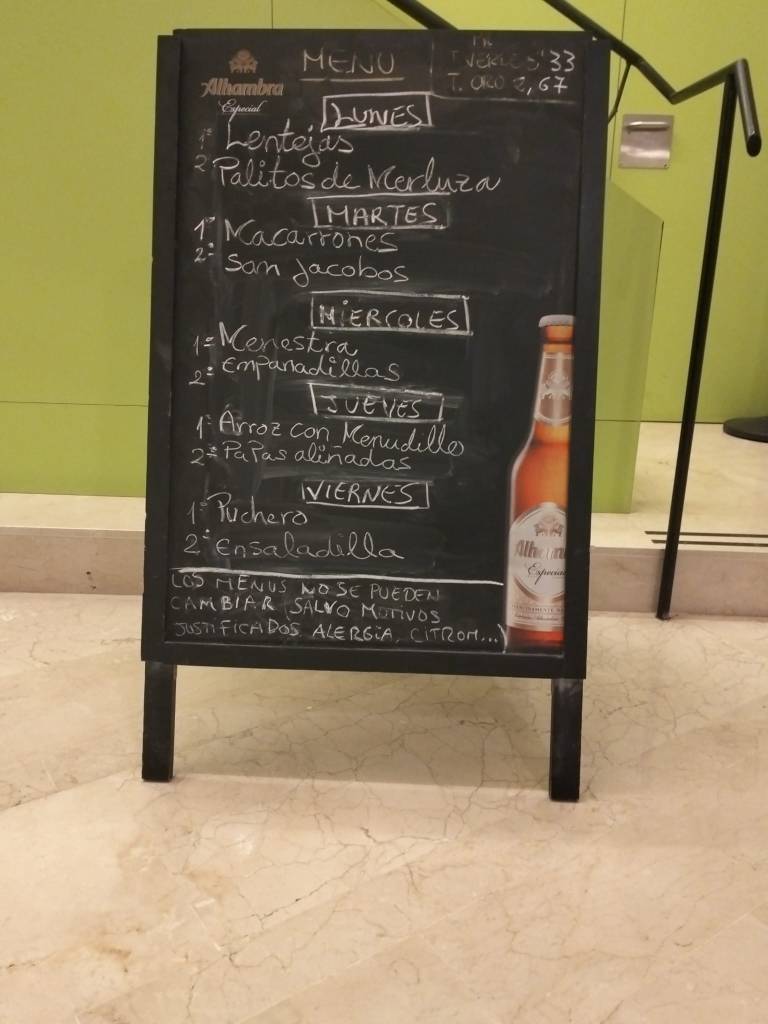 Alhambra
Especial
MENU
T. VERDE 5'33
T. ORO 2,67
LUNES
1º Lentejas
2º Palitos de Merluza
MARTES
1º Macarrones
2º San Jacobos
MIERCOLES
1º Menestra
2º Empanadillas
JUEVES
1º Arroz con Menudillo
2º PaPas aliñadas
VIERNES
1º Puchero
2º Ensaladilla
LOS MENUS NO SE PUEDEN
CAMBIAR (SALVO MOTIVOS
JUSTIFICADOS ALERGIA, CITROM...)
Alham
Especial